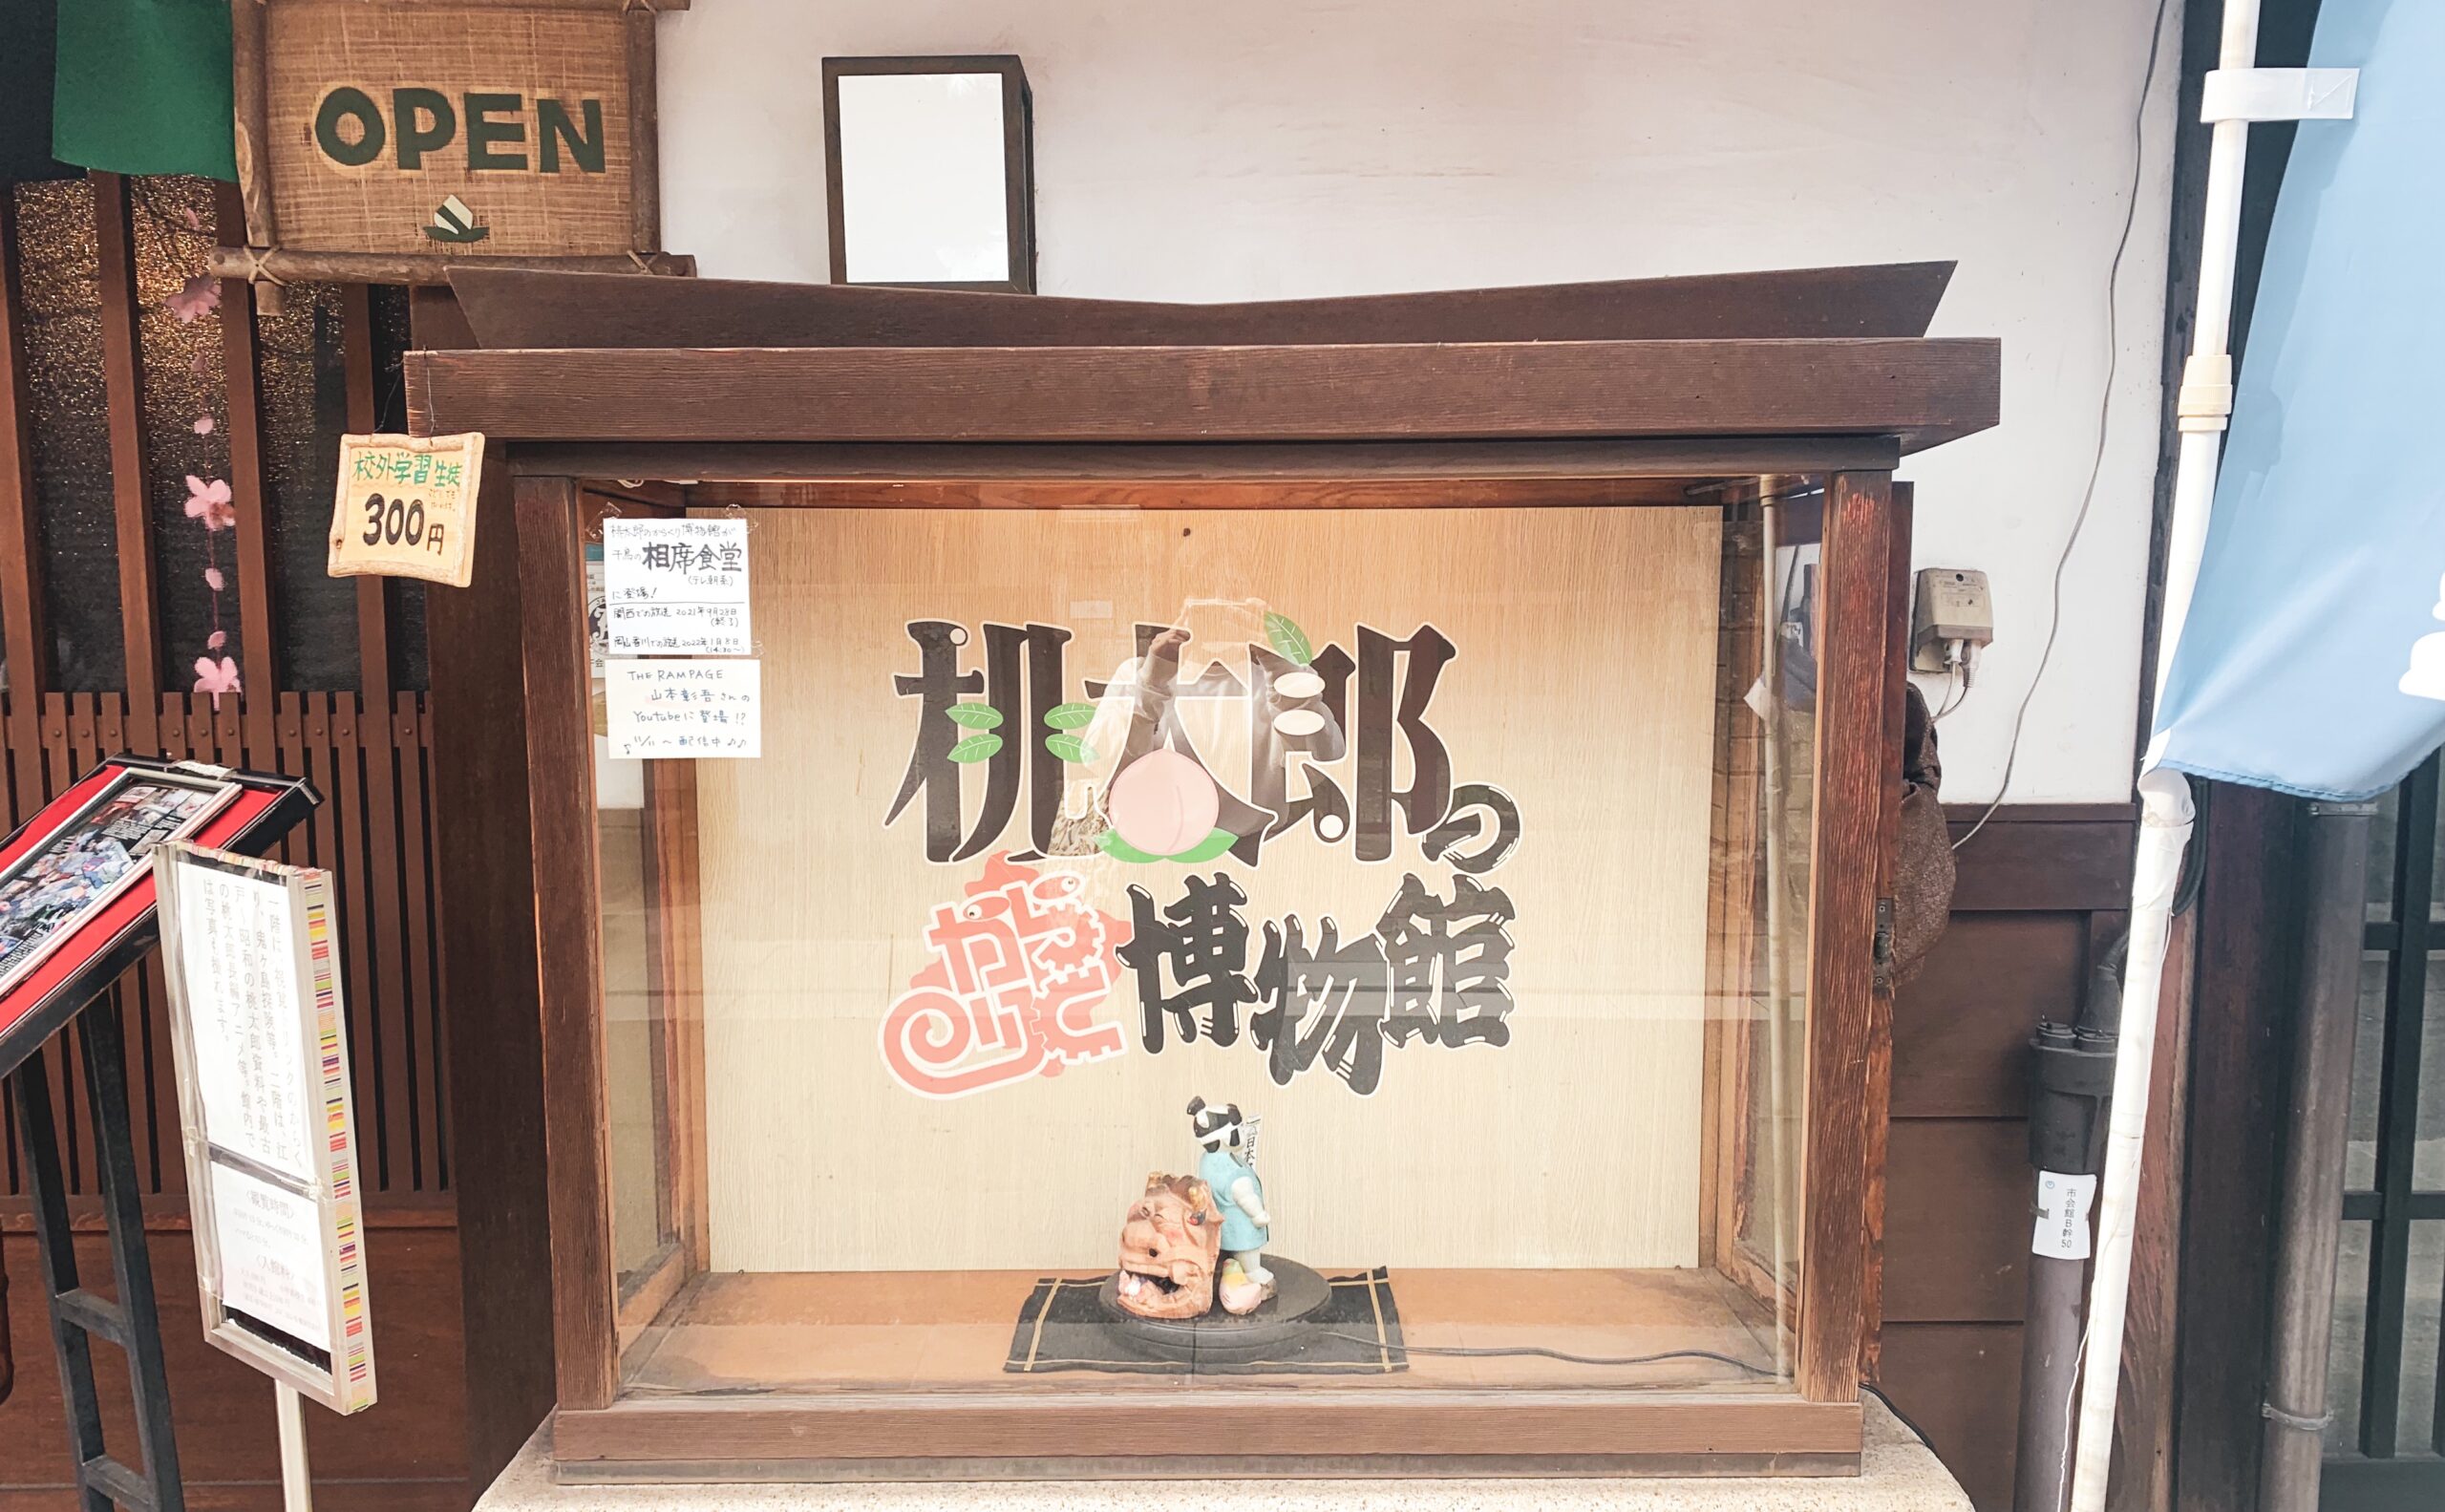 OPEN
校外学習生徒
300円
桃太郎のからくり博物館が
千鳥の相席食堂
(テレ朝系)
に登場!
関西での放送 2021年9月28日
(終了)
岡山香川での放送 2022年1月8日
(14:30〜)
THE RAMPAGE
山本彰吾さんの
Youtubeに登場!?
11/11〜配信中♪♪
桃太郎の
からくり
博物館
一階は、
鬼ヶ島探険等。二階は、江
戸〜昭和の桃太郎資料や最古
の桃太郎長編アニメ等。館内で
は写真も撮れます。
〈観覧時間〉
〈入館料〉
日本
市会館B幹
50